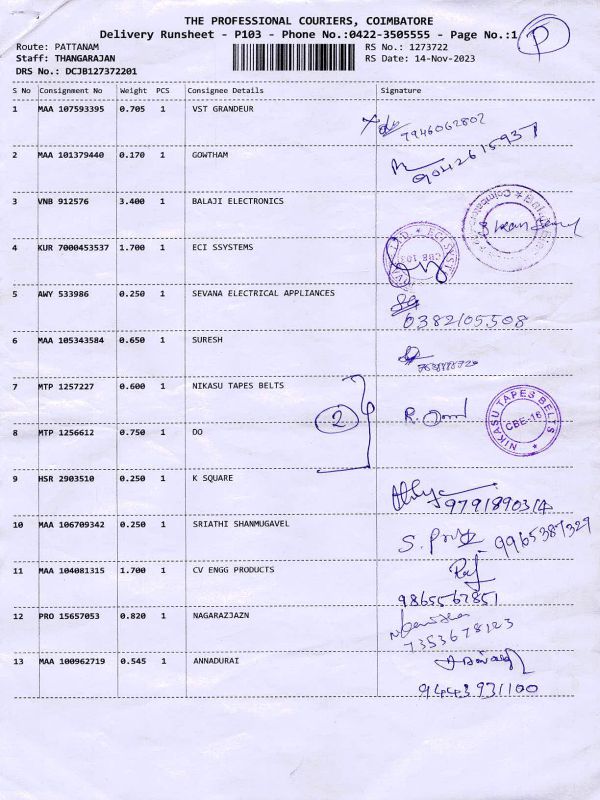 THE PROFESSIONAL COURIERS, COIMBATORE
Delivery Runsheet - P103 - Phone No.:0422-3505555 - Page No.:1
P
Route: PATTANAM
RS No.: 1273722
Staff: THANGARAJAN
RS Date: 14-Nov-2023
DRS No.: DCJB127372201
S No Consignment No Weight PCS Consignee Details Signature
1 MAA 107593395 0.705 1 VST GRANDEUR
7946062802
2 MAA 101379440 0.170 1 GOWTHAM
9042615937
3 VNB 912576 3.400 1 BALAJI ELECTRONICS
4 KUR 7000453537 1.700 1 ECI SSYSTEMS
ECI SYST
5 AWY 533986 0.250 1 SEVANA ELECTRICAL APPLIANCES
6382105508
6 MAA 105343584 0.650 1 SURESH
7 MTP 1257227 0.600 1 NIKASU TAPES BELTS
2
NIKASU TAPES BELTS
CBE-16
8 MTP 1256612 0.750 1 DO
9 HSR 2903510 0.250 1 K SQUARE
9791890314
10 MAA 106709342 0.250 1 SRIATHI SHANMUGAVEL
9965387329
11 MAA 104081315 1.700 1 CV ENGG PRODUCTS
Raj
9865562851
12 PRO 15657053 0.820 1 NAGARAZJAZN
7353678123
13 MAA 100962719 0.545 1 ANNADURAI
9443931100